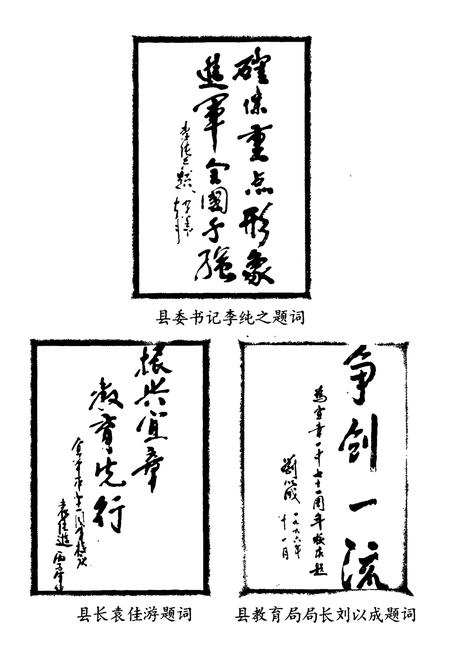 確保重点形象
進軍全國千强
县委书记李纯之题词
振兴宜章
教育先行
县长袁佳游题词
争创一流
為宜章一中七十一周年校庆題
劉以成
一九九六年
十一月
县教育局局长刘以成题词